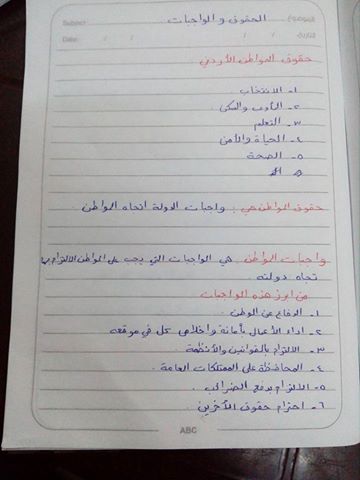 Subject: الحقوق والواجبات الموضوع:
Date: / / / / التاريخ:
حقوق المواطن الأردني
١- الانتخاب
٢- المأوى والسكن
٣- التعلم
٤- الحياة والأمن
٥- الصحة
حقوق المواطن هي : واجبات الدولة اتجاه المواطن .
واجبات المواطن هي الواجبات التي يجب على المواطن الالتزام بها
تجاه دولته
من ابرز هذه الواجبات
١- الدفاع عن الوطن .
٢- اداء الأعمال بأمانة واخلاص كل في موقعه
٣- الالتزام بالقوانين والأنظمة
٤- المحافظة على الممتلكات العامة .
٥- الالتزام بدفع الضرائب .
٦- احترام حقوق الآخرين .
ABC